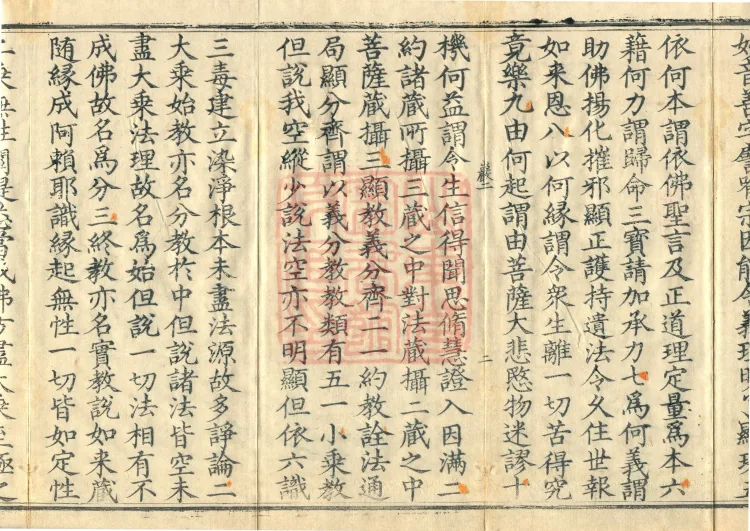 依何本謂依佛聖言及正道理定量爲本六
籍何力謂歸命三寶請加承力七爲何義謂
助佛揚化摧邪顯正護持遺法令久住世報
如来恩八以何縁謂令衆生離一切苦得究
竟樂九由何起謂由菩薩大悲愍物迷謬十
嚴一
二
機何益謂令生信得聞思脩慧證入因滿二
約諸藏所攝三藏之中對法藏攝二藏之中
菩薩藏攝三顯教義分齊二一約教詮法通
局顯分齊謂以義分教教類有五一小乗教
但說我空縱少說法空亦不明顯但依六識
三毒建立染淨根本未盡法源故多諍論二
大乗始教亦名分教於中但說諸法皆空未
盡大乗法理故名爲始但說一切法相有不
成佛故名爲分三終教亦名實教說如来藏
随縁成阿賴耶識縁起無性一切皆如定性